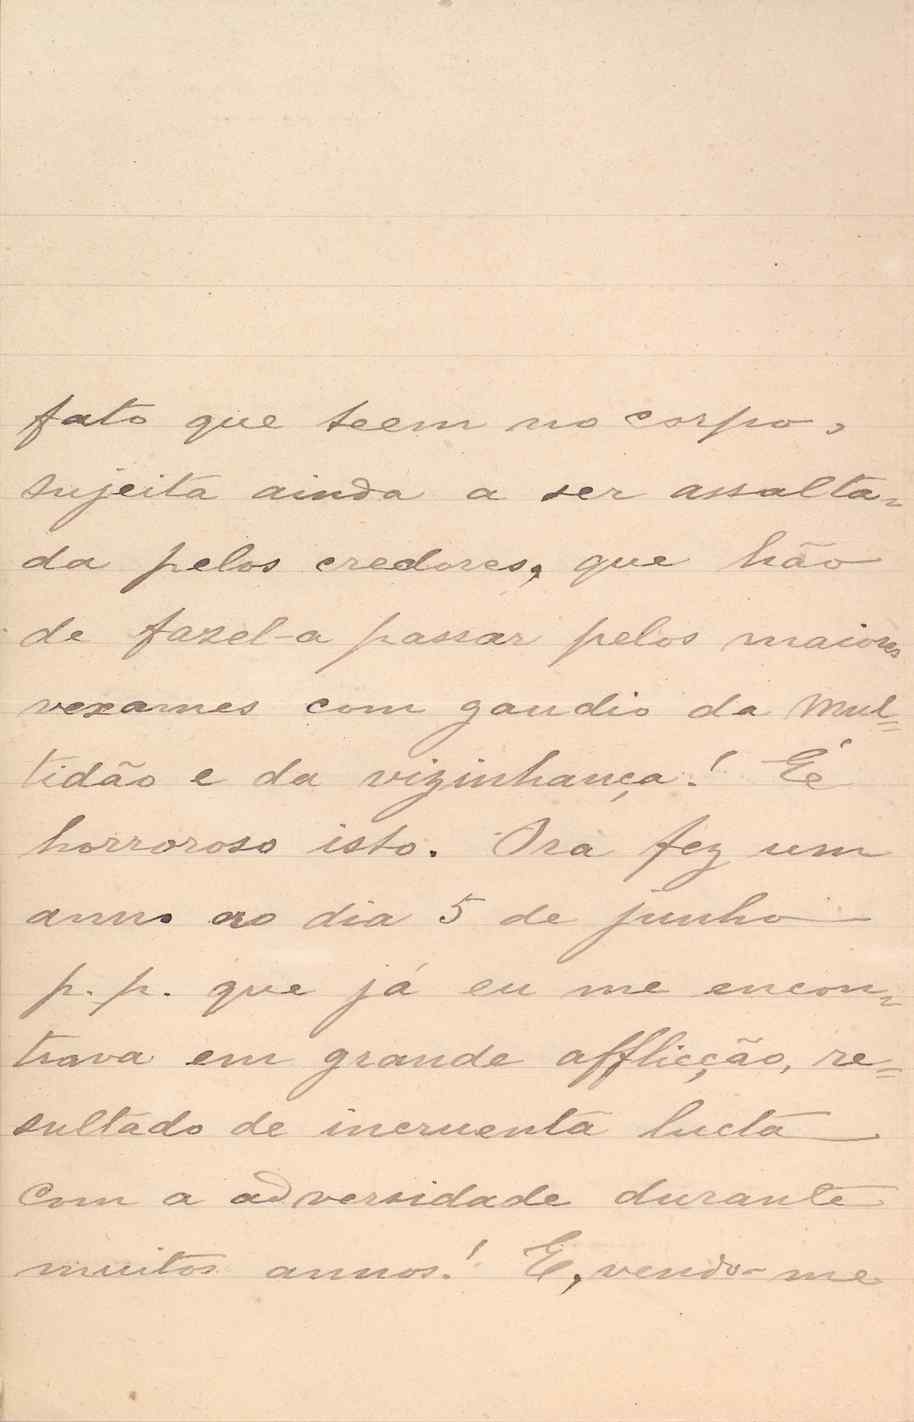 fato que teem no corpo,
sujeita ainda a ser assalta-
da pelos credores, que hão
de fazel-a passar pelos maiores
vexames com gaudio da mul=
tidão e da vizinhança! É
horroroso isto. Ora fez um
anno no dia 5 de junho
p. p. que já eu me encon-
trava em grande afflicção, re=
sultado de incruenta lucta
com a adversidade durante
muitos annos! E, vendo-me